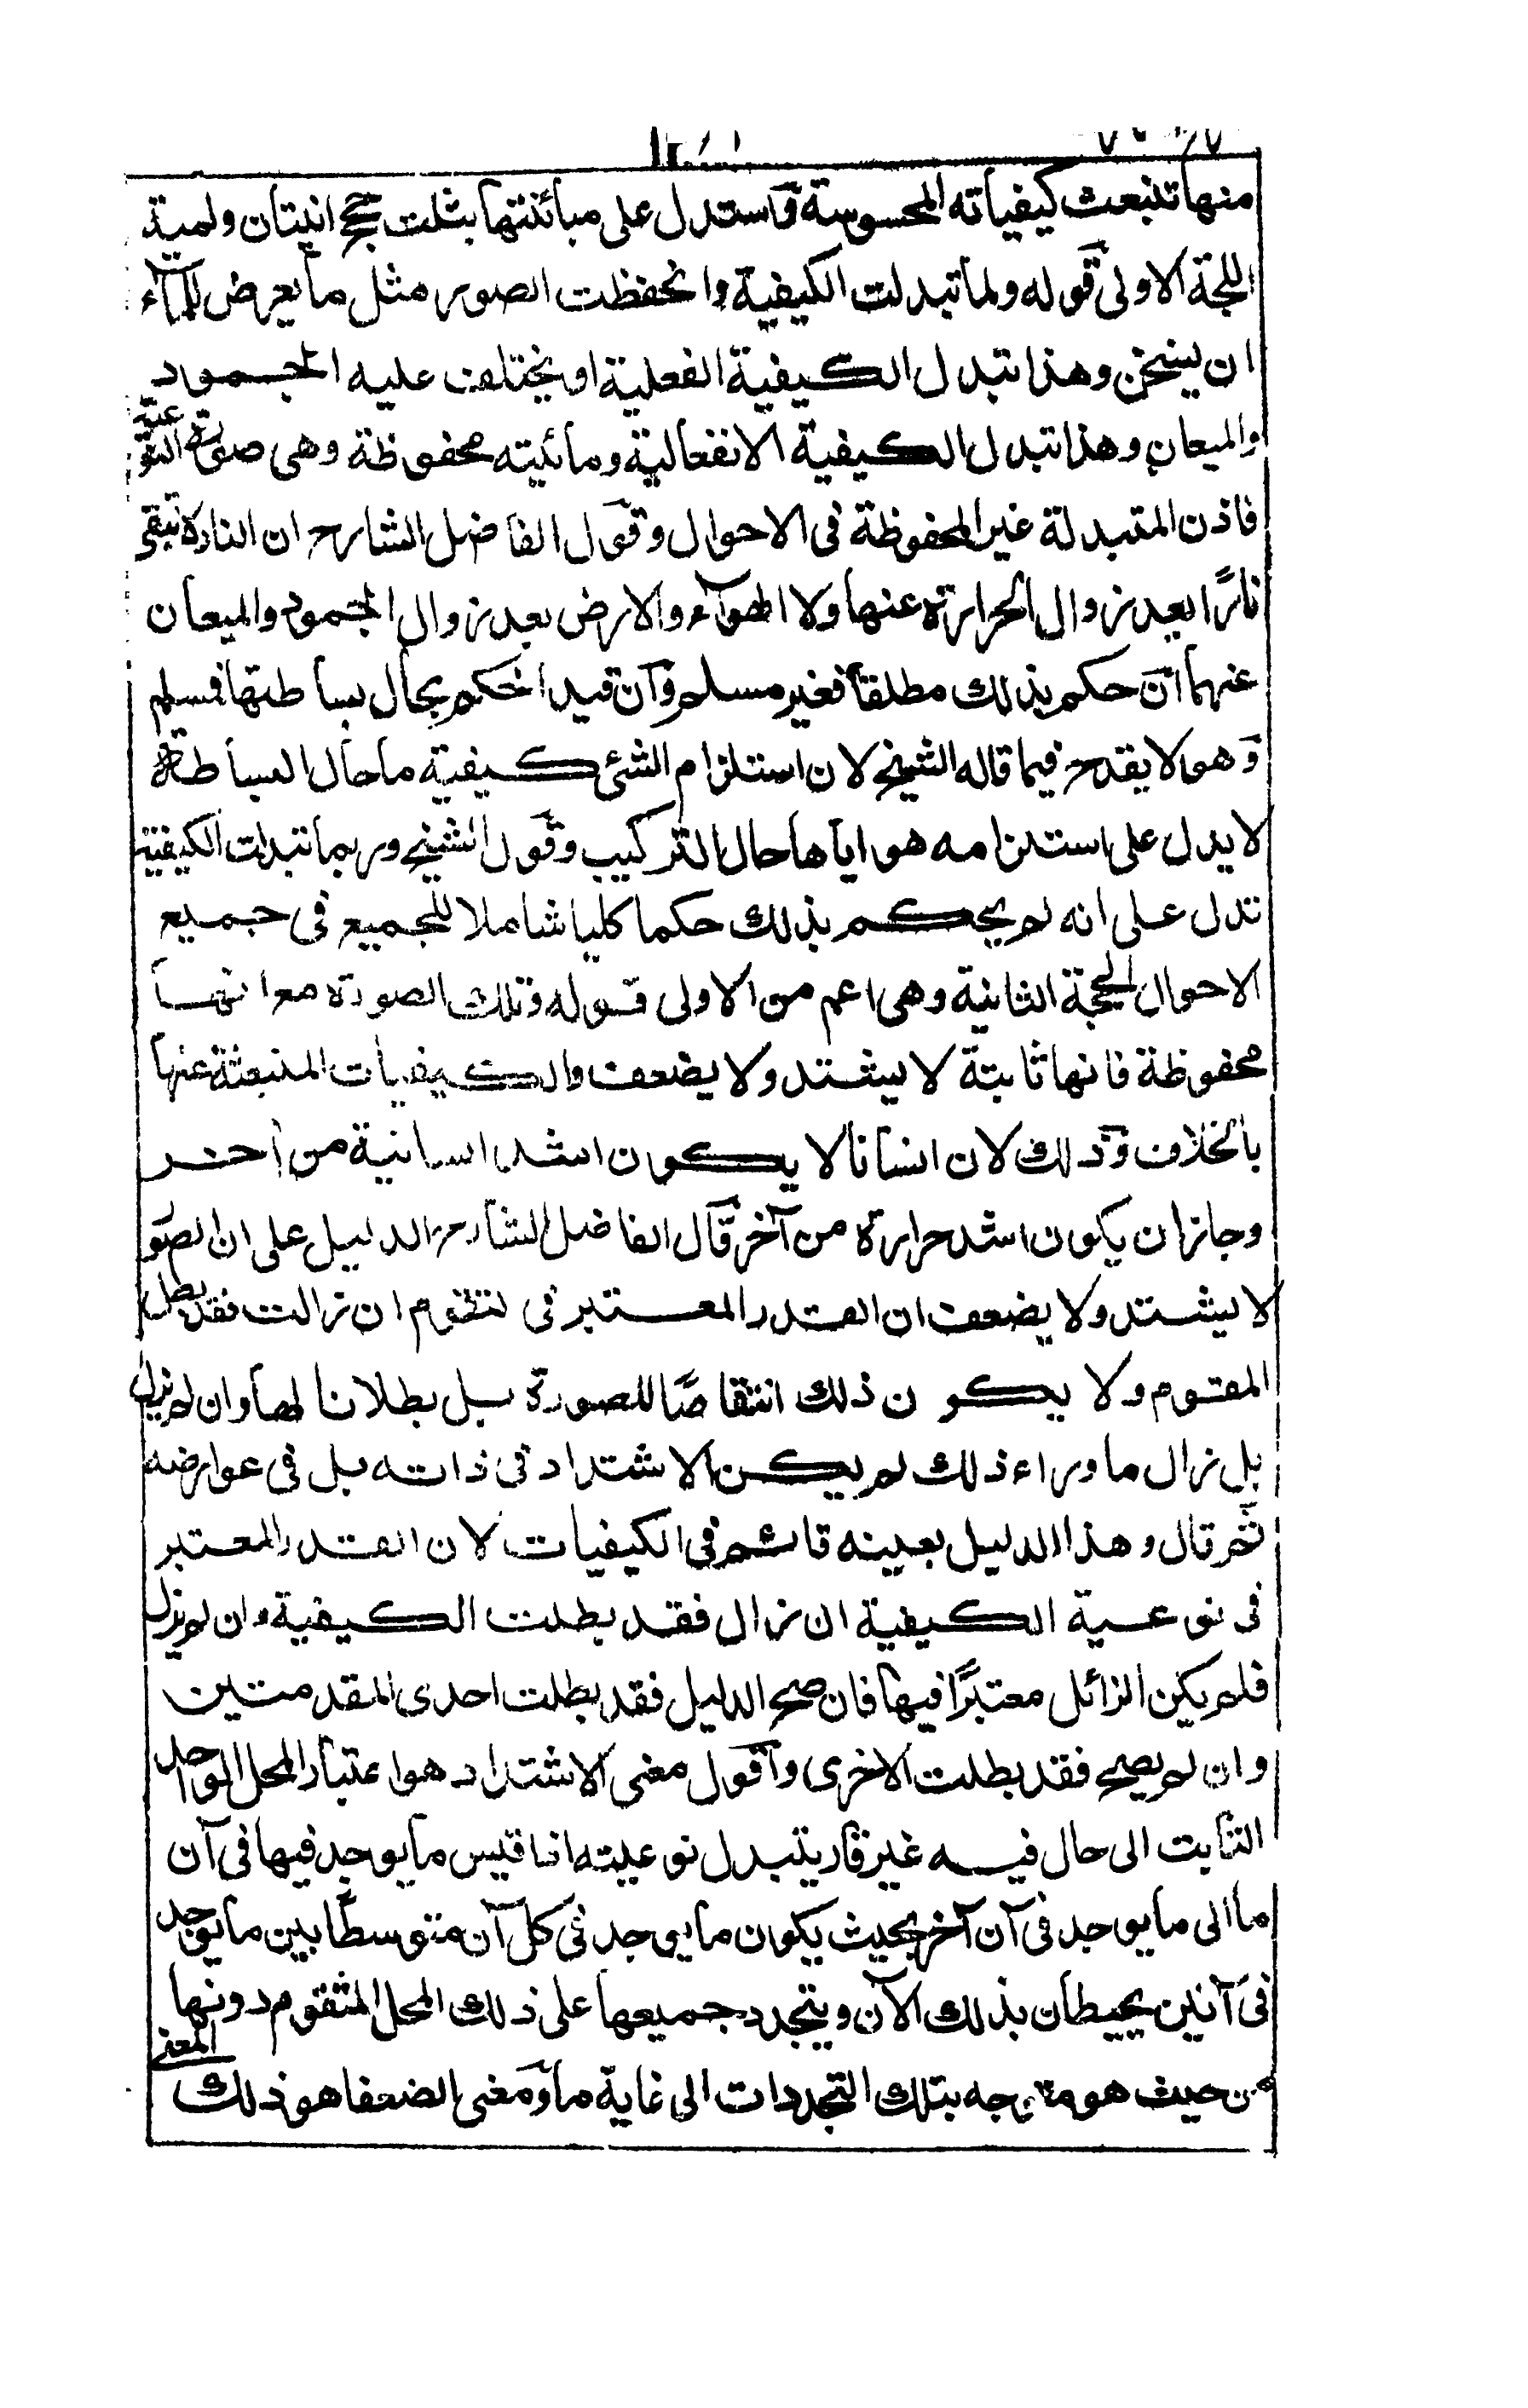 منها تنبعث كيفياته المحسوسة وآستدل على مبائنتها بثلث حجج انيتان ولمية
اللجة الاولى قوله ولما تبدلت الكيفية وانحفظت الصور مثل ما يعرض للمآء
ان يسخن وهذا تبدل الكيفية الفعلية او يختلف عليه الجمود
والميعان وهذا تبدل الكيفية الانفعالية ومائيته محفوظة وهى صورته النوعية
فاذن المتبدلة غير المحفوظة فى الاحوال وقول الفاضل الشارح ان النار لا تبقى
نارًا بعد زوال الحرارة عنها ولا الهوآء والارض بعد زوال الجمود والميعان
عنهما ان حكم بذلك مطلقا فغير مسلم وآن قيد الحكم بحال بساطتها فمسلم
وهو لا يقدح فيما قاله الشيخ لان استلزام الشئ كيفية ما حال البساطة
لا يدل على استلزامه هو اياها حال التركيب وقول الشيخ وربما تبدلت الكيفية
تدل على انه لم يحكم بذلك حكما كليا شاملا للجميع فى جميع
الاحوال الحجة الثانية وهى اعم من الاولى قوله وتلك الصورة مع انها
محفوظة فانها ثابتة لا يشتد ولا يضعف والكيفيات المنبعثة عنها
بالخلاف وذلك لان انسانا لا يكون اشد انسانية من آخر
وجاز ان يكون اشد حرارة من آخر قال الفاضل الشارح الدليل على ان الصور
لا يشتد ولا يضعف ان القدر المعتبر فى لتقوم ان زالت فقد بطل
المقوم ولا يكون ذلك انتقاصًا للصورة بل بطلانا لها وان لم يزل
بل زال ما وراء ذلك لم يكن الاشتداد فى ذاته بل فى عوارضه
ثم قال وهذا الدليل بعينه قائم فى الكيفيات لان القدر المعتبر
فى نوعية الكيفية ان زال فقد بطلت الكيفية وان لم يزل
فلم يكن الزائل معتبرًا فيها فان صح الدليل فقد بطلت احدى المقدمتين
وان لم يصح فقد بطلت الاخرى وآقول معنى الاشتداد هو اعتبار المحل الواحد
الثابت الى حال فيه غير قار يتبدل نوعيته اذا قيس ما يوجد فيها فى آن
ما الى ما يوجد فى آن آخر بحيث يكون ما يوجد فى كل آن متوسطا بين ما يوجد
فى آنين يحيطان بذلك الآن ويتجدد جميعها على ذلك المحل المتقوم دونها
من حيث هو متوجه بتلك التجددات الى غاية ما ومعنى الضعف هو ذلك
المعنى